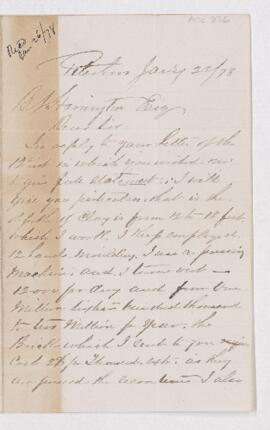 Recd
Jan 26/78
Jany 22/78
B J Harrington Esq
Dear Sir
In reply to your letter of the
inst in which you wished me
to give full statement, I will
give you particulars, that is the
depth of Clay is from 12 to 18 feet
which I work. I keep employed
12 hands moulding, I use a pressing
Machine and I turn out
12000 per day and from One
Million eighteen hundred thousand
to two Million pr Year, the
Bricks which I sent to you
Cost 2$ pr Thousd. extr. as they
are pressed the second time I also